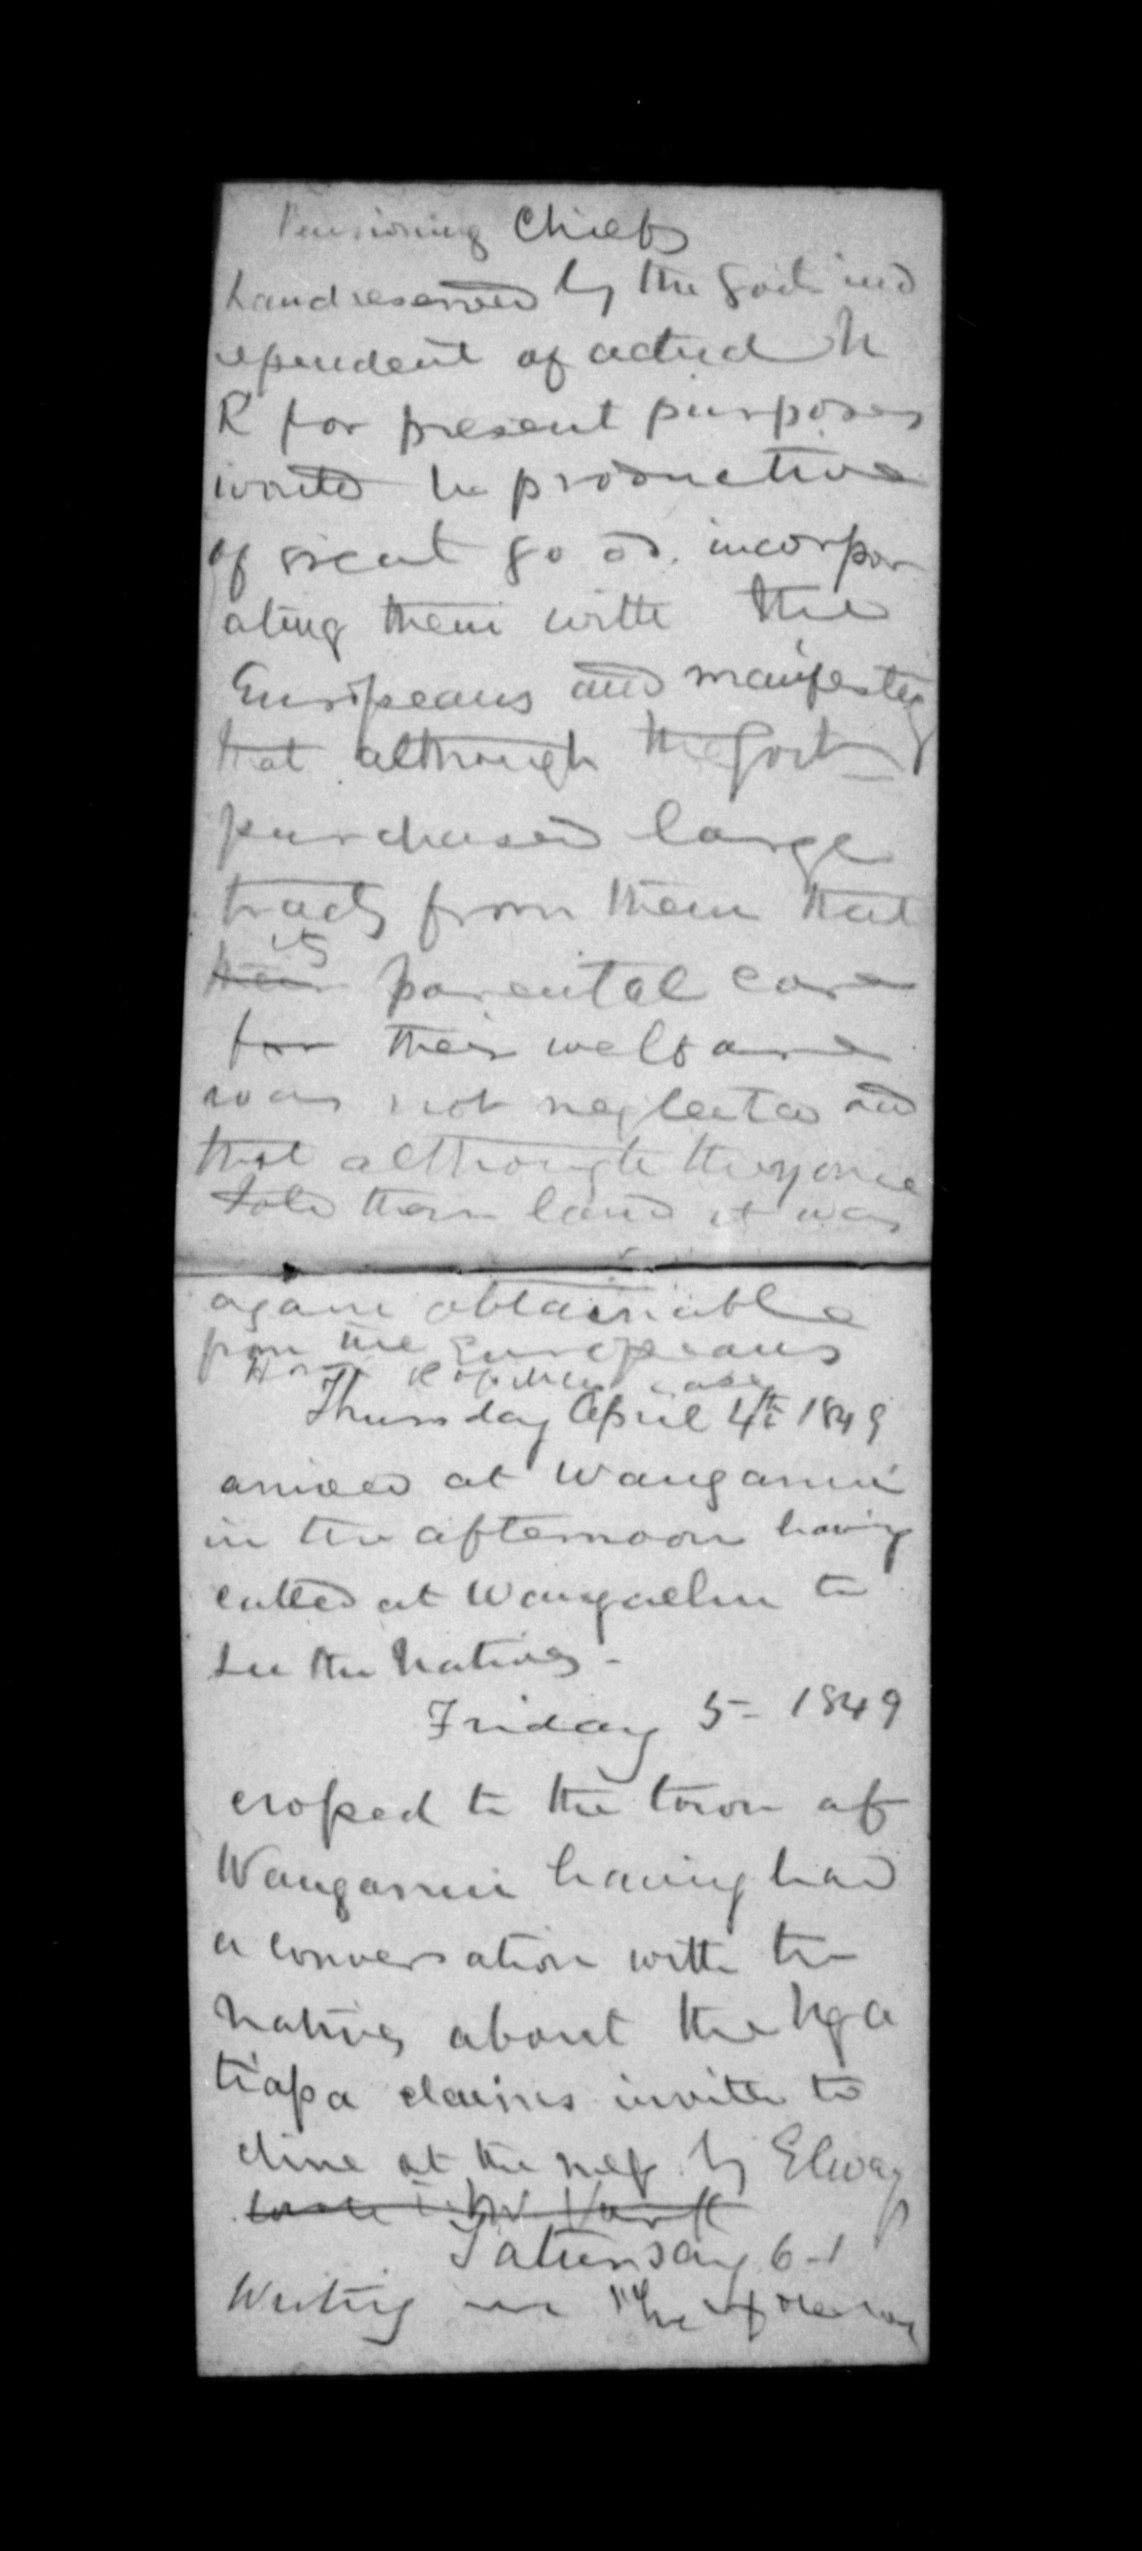 Pensioning Chiefs
Land reserved by the Govt ind
ependent of actual N
R for present purposes
would be productive
of great good. incorpor
ating them with the
Europeans and manifesting
that although the Govt
purchased large
tracts from them that
its
their parental care
for their welfare
was not neglected and
that although they once
sold their land it was
again obtainable
from the Europeans
case
Thursday April 4th 1849
arrived at Wanganui
in the afternoon having
called at Wangaehu to
see the Natives -
Friday 5 - 1849
crossed to the town of
Wanganui having had
a conversation with the
natives about the Nga
tiapa claims invited to
dine at the mess by Elway
Saturday 6 -
Writing in the forenoon